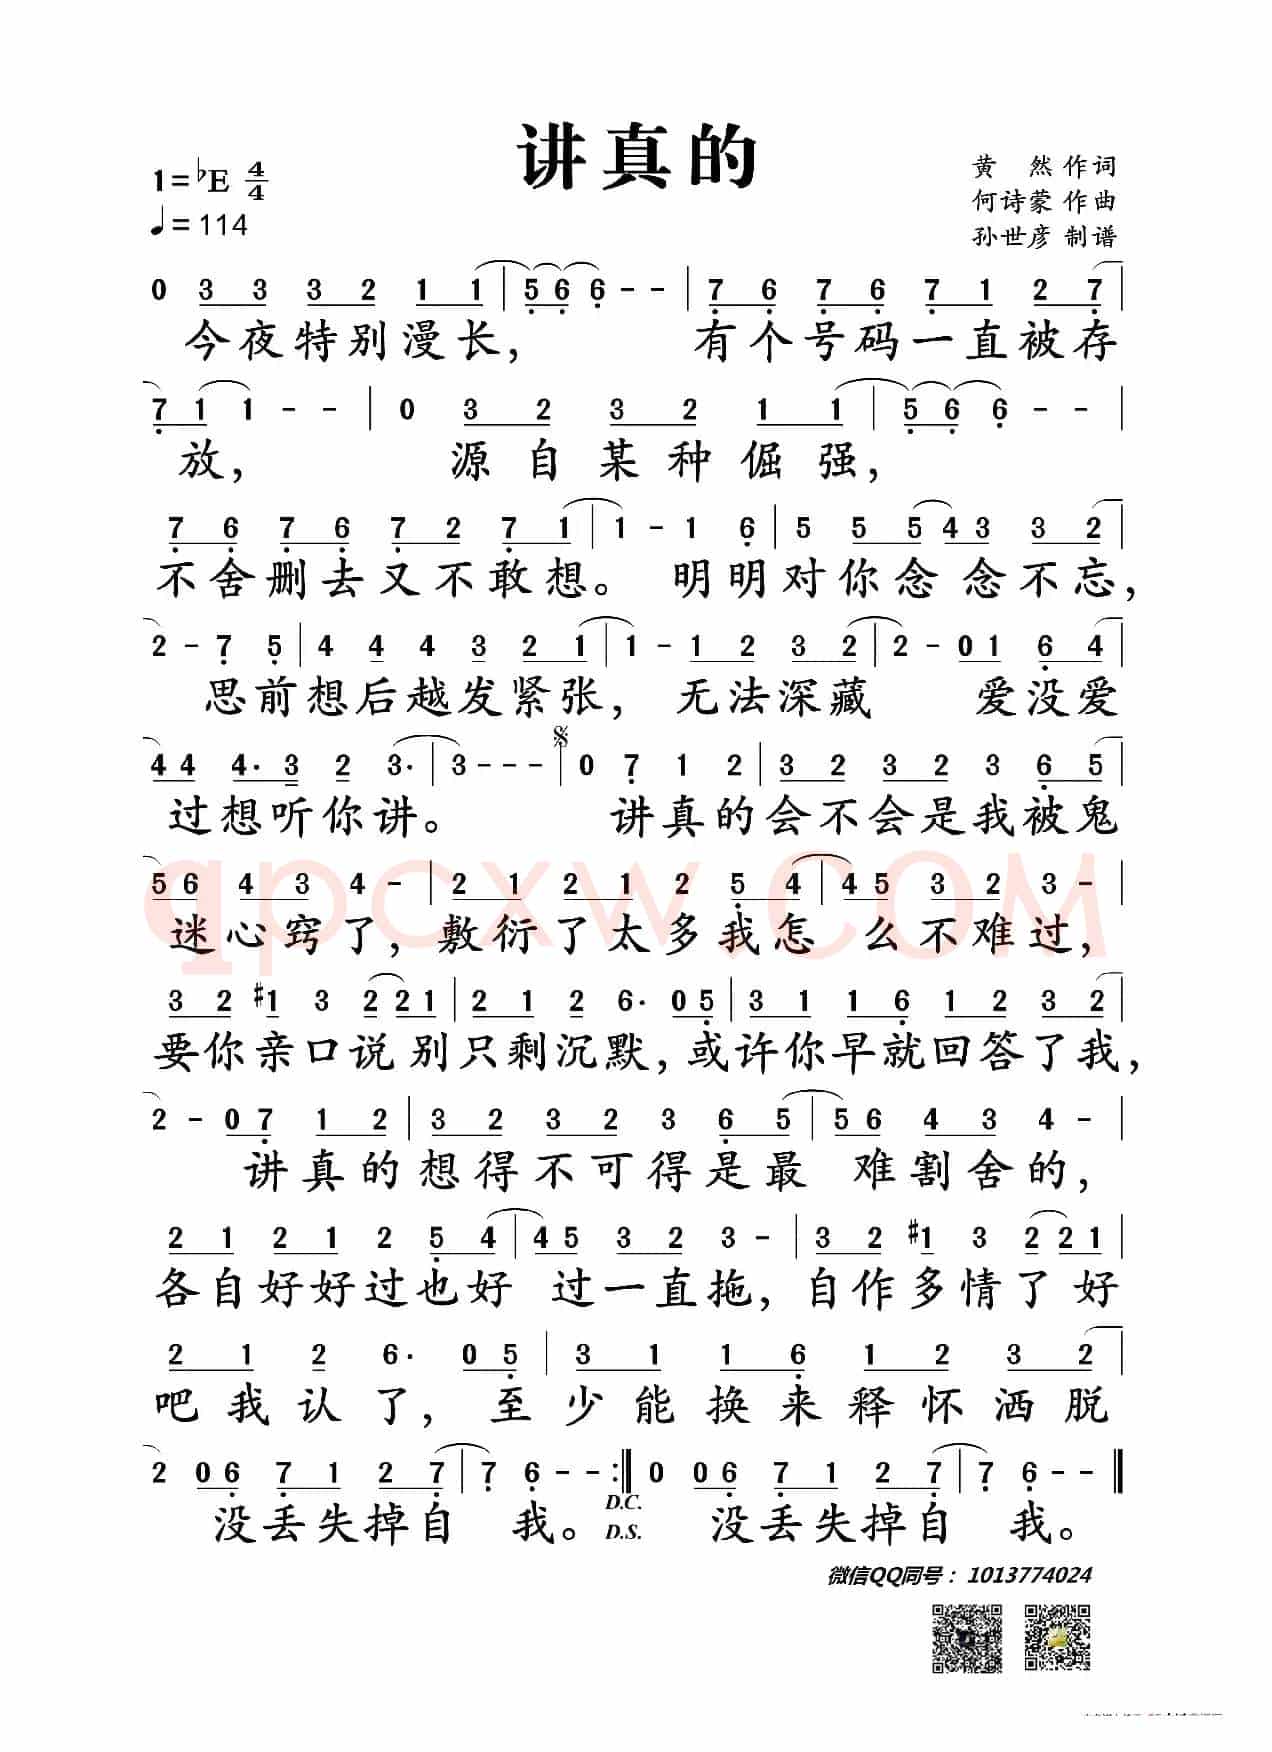 讲真的
1=♭E 4/4
♩=114
黄 然 作词
何诗蒙 作曲
孙世彦 制谱
0 3 3 3 2 1 1 | 5 6 6 - - | 7 6 7 6 7 1 2 7 |
今夜特别漫长, 有个号码一直被存
7 1 1 - - | 0 3 2 3 2 1 1 | 5 6 6 - - |
放, 源自某种倔强,
7 6 7 6 7 2 7 1 | 1 - 1 6 | 5 5 5 4 3 3 2 |
不舍删去又不敢想。 明明对你念念不忘,
2 - 7 5 | 4 4 4 3 2 1 | 1 - 1 2 3 2 | 2 - 0 1 6 4 |
思前想后越发紧张, 无法深藏 爱没爱
4 4 4· 3 2 3· | 3 - - - | 0 7 1 2 | 3 2 3 2 3 6 5 |
过想听你讲。 讲真的会不会是我被鬼
5 6 4 3 4 - | 2 1 2 1 2 5 4 | 4 5 3 2 3 -
迷心窍了, 敷衍了太多我怎么不难过,
qpcxw.COM
3 2 #1 3 2 2 1 | 2 1 2 6· 0 5 | 3 1 1 6 1 2 3 2 |
要你亲口说别只剩沉默, 或许你早就回答了我,
2 - 0 7 1 2 | 3 2 3 2 3 6 5 | 5 6 4 3 4 - |
讲真的想得不可得是最难割舍的,
2 1 2 1 2 5 4 | 4 5 3 2 3 - | 3 2 #1 3 2 2 1 |
各自好好过也好过一直拖, 自作多情了好
2 1 2 6· 0 5 | 3 1 1 6 1 2 3 2 |
吧我认了, 至少能换来释怀洒脱
2 0 6 7 1 2 7 | 7 6 - - :‖ 0 0 6 7 1 2 7 | 7 6 - - ‖
没丢失掉自我。 D.C. D.S. 没丢失掉自我。
微信QQ同号： 1013774024